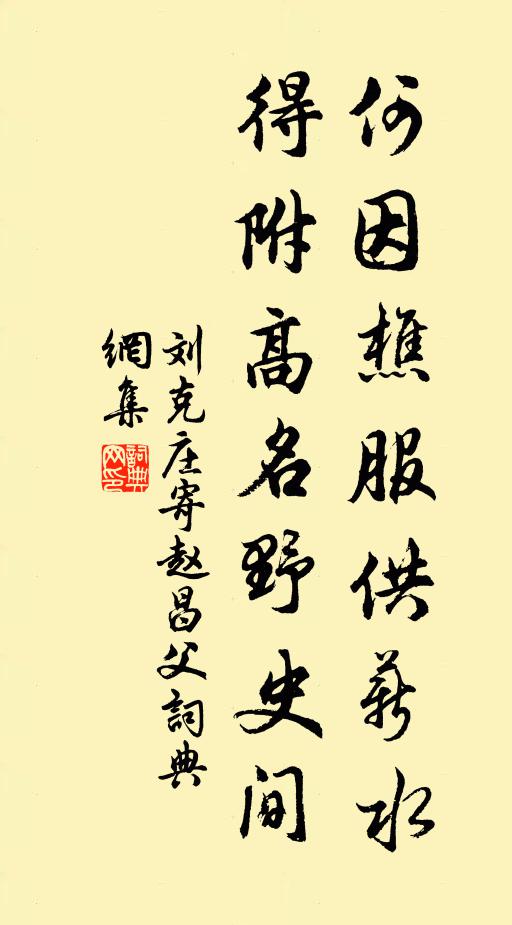 何因樵服供薪水
得附高名野史间
刘克庄寄赵昌父詞典
網集
詞典
网印